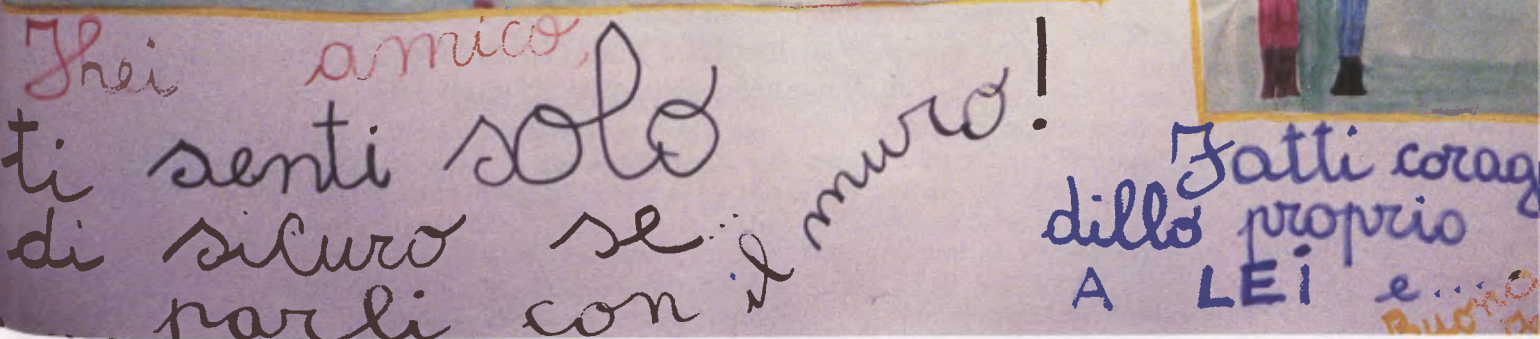 Ihei amico,
ti senti solo
di sicuro se...
... parli con il muro!
Fatti corag
dillo proprio
A LEI e....
Buono